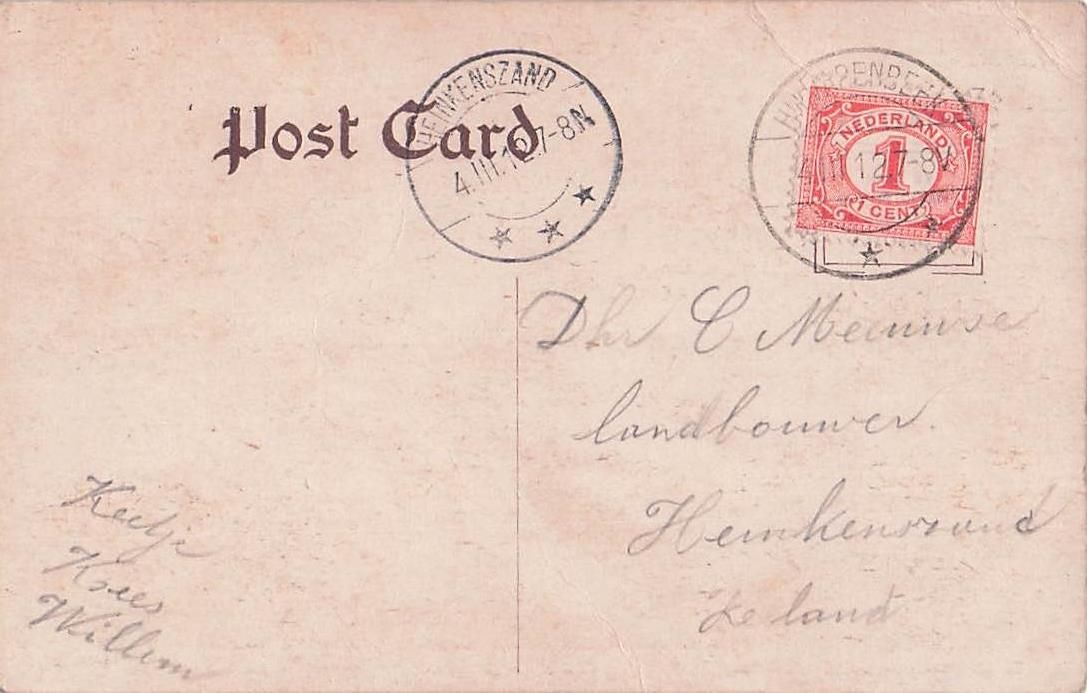 Post Card
HEINKENSZAND
4.III.12.7-8N
4.III.12.7-8N
NEDERLAND
1
1 CENT
Dhr C Meeuwse
landbouwer.
Heinkenszand
Zeland
Keetje
Kees
Willem